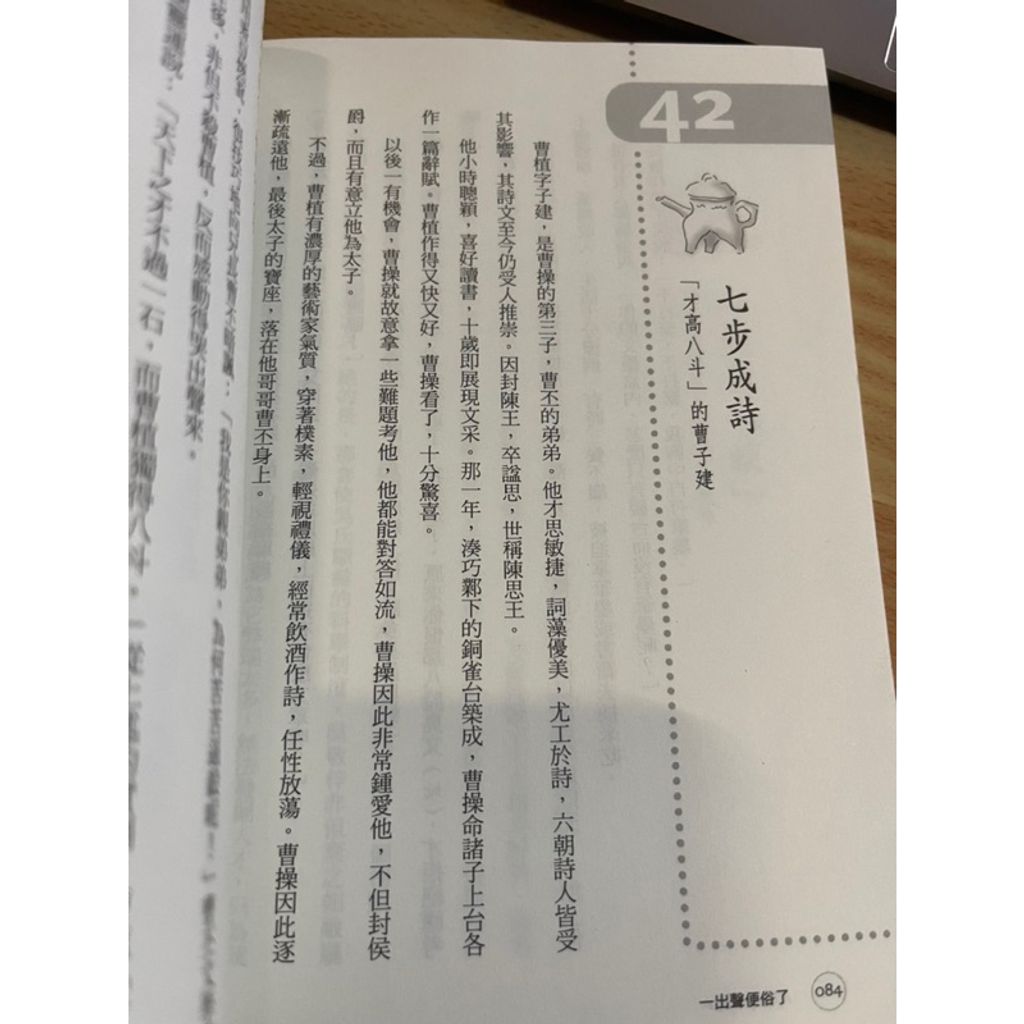 42
七步成詩
「才高八斗」的曹子建
曹植字子建，是曹操的第三子，曹丕的弟弟。他才思敏捷，詞藻優美，尤工於詩，六朝詩人皆受
其影響，其詩文至今仍受人推崇。因封陳王，卒諡思，世稱陳思王。
他小時聰穎，喜好讀書，十歲即展現文采。那一年，湊巧鄴下的銅雀台築成，曹操命諸子上台各
作一篇辭賦。曹植作得又快又好，曹操看了，十分驚喜。
以後一有機會，曹操就故意拿一些難題考他，他都能對答如流，曹操因此非常鍾愛他，不但封侯
爵，而且有意立他為太子。
不過，曹植有濃厚的藝術家氣質，穿著樸素，輕視禮儀，經常飲酒作詩，任性放蕩。曹操因此逐
漸疏遠他，最後太子的寶座，落在他哥哥曹丕身上。
一出聲便俗了
084
「我是你親弟弟，
反而感動得哭出聲來。
「天下之才不過一石，而曹植獨得八斗。